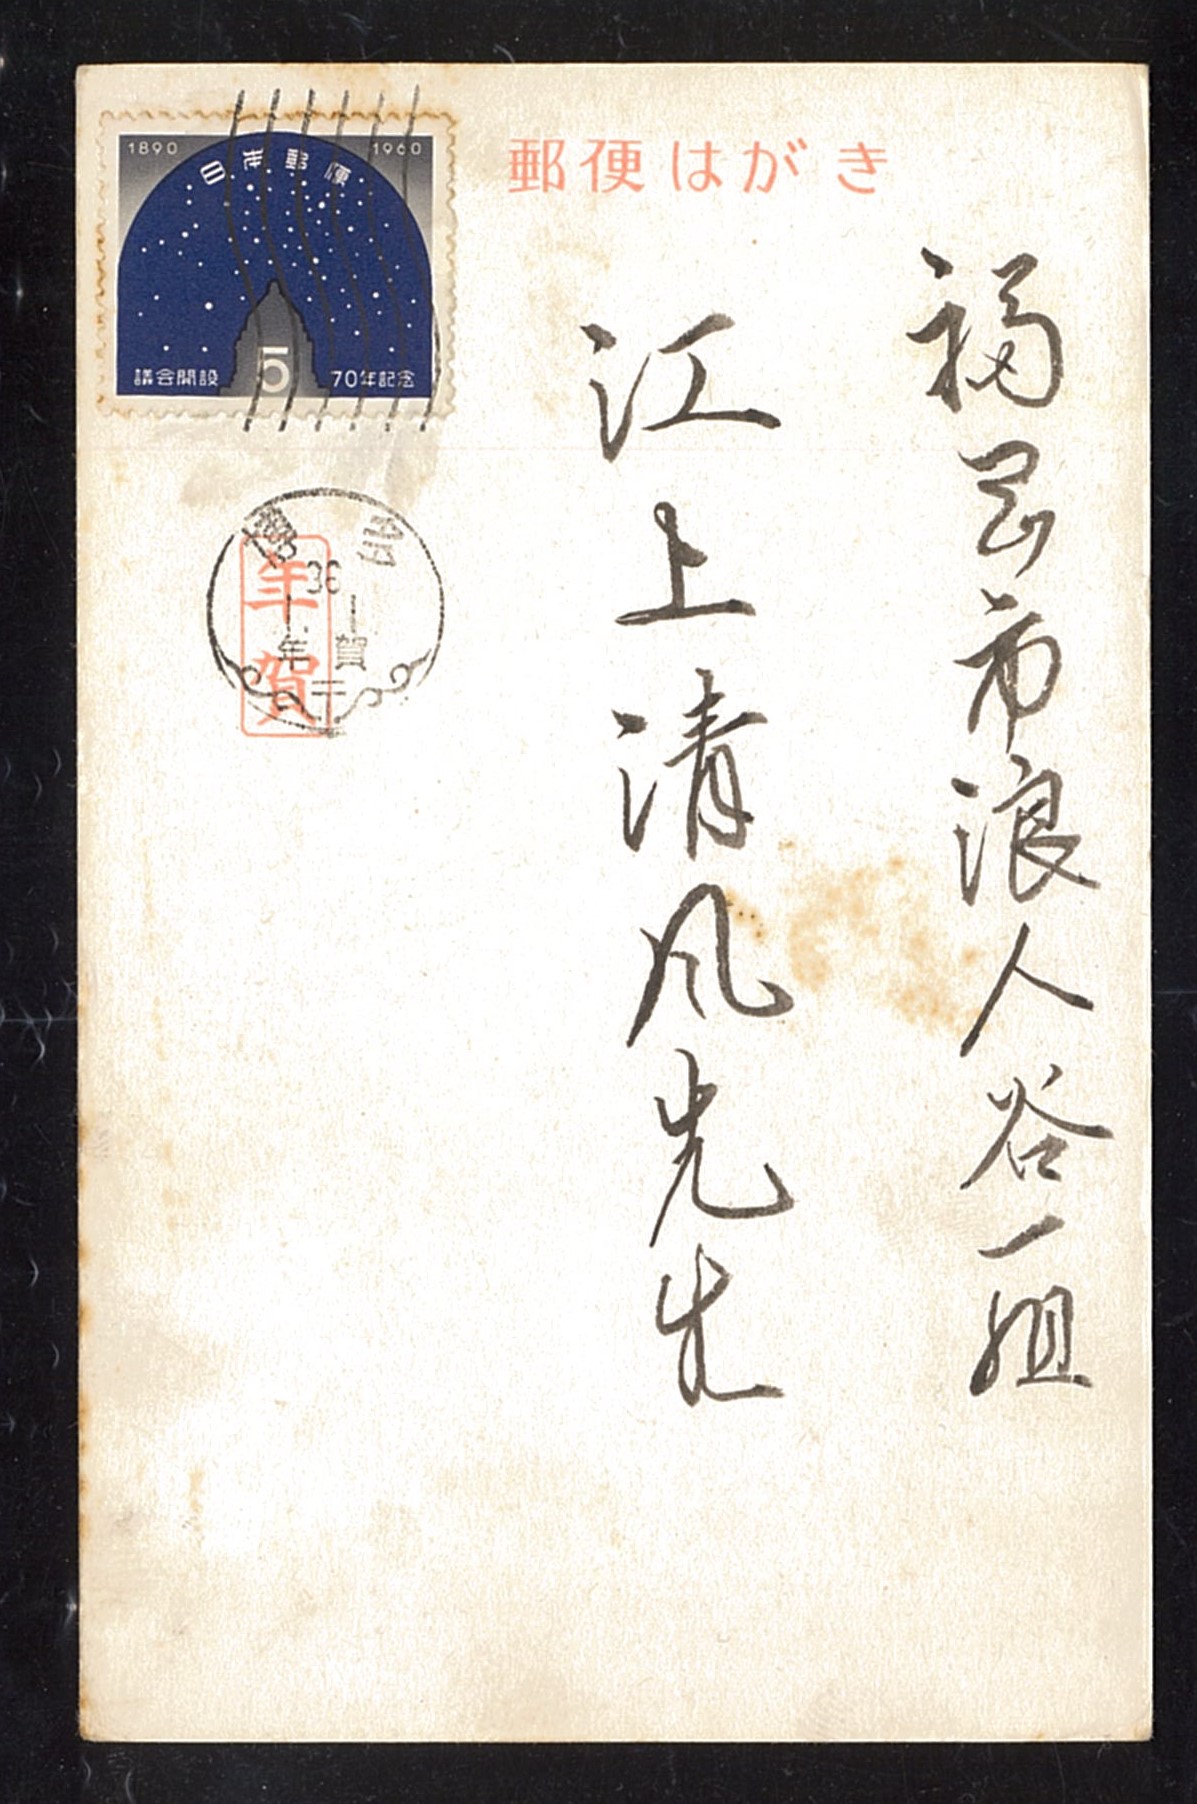 郵便はがき
福岡市浪人谷一組
江上清風先生
1890 1960
日本郵便
議会開設 5 70年記念
年賀
博多
36
1. 1
年賀